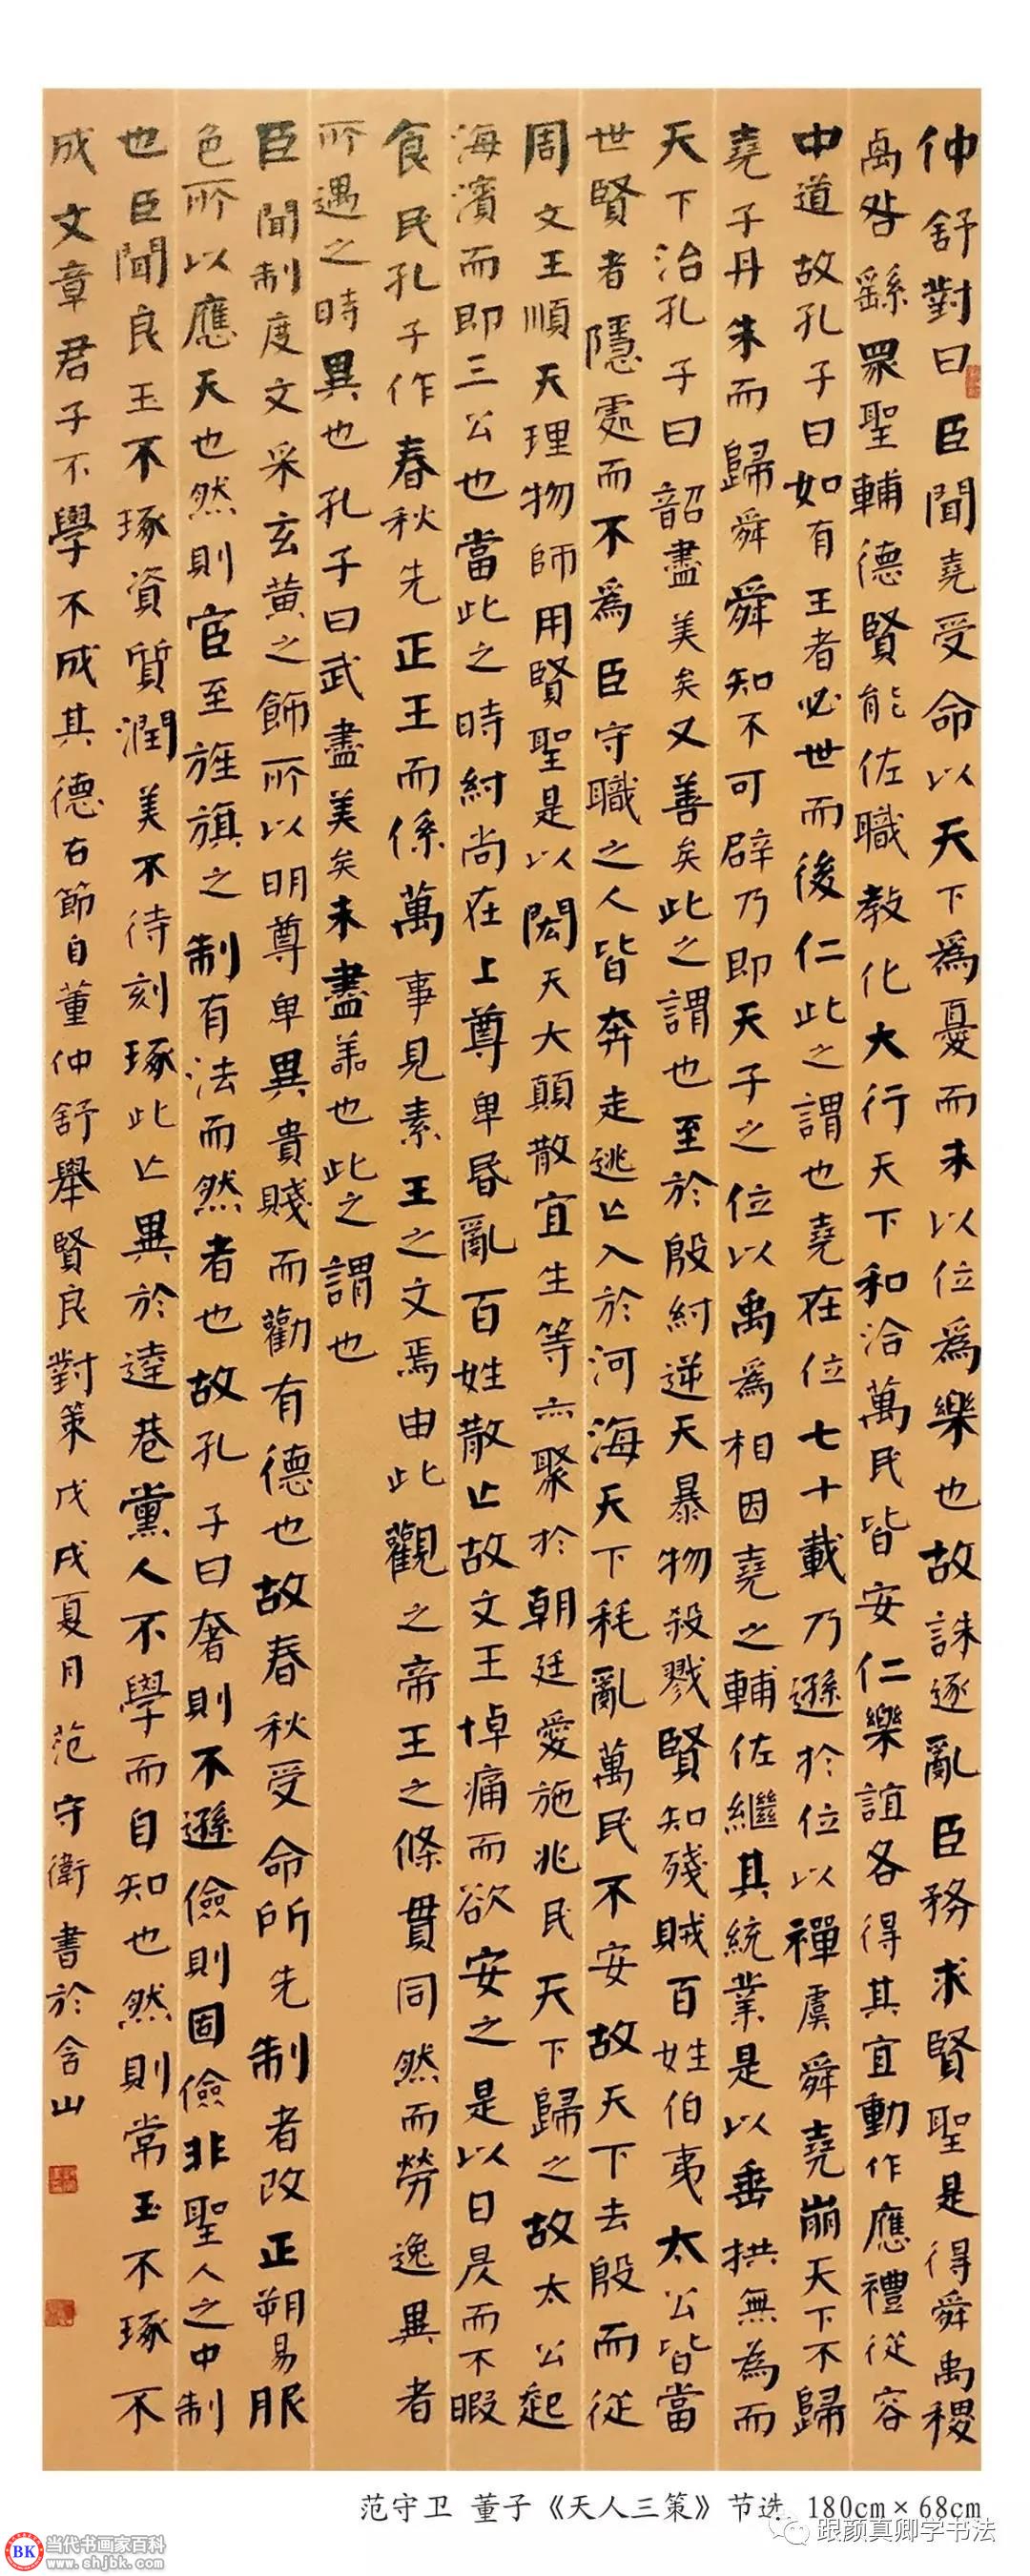 仲舒對曰臣聞堯受命以天下為憂而未以位為樂也故誅逐亂臣務求賢聖是得舜禹稷
卨咎繇眾聖輔德賢能佐職教化大行天下和洽萬民皆安仁樂誼各得其宜動作應禮從容
中道故孔子曰如有王者必世而後仁此之謂也堯在位七十載乃遜於位以禪虞舜堯崩天下不歸
堯子丹朱而歸舜舜知不可辟乃即天子之位以禹為相因堯之輔佐繼其統業是以垂拱無為而
天下治孔子曰韶盡美矣又善矣此之謂也至於殷紂逆天暴物殺戮賢知殘賊百姓伯夷太公皆當
世賢者隱處而不為臣守職之人皆奔走逃亡入於河海天下秏亂萬民不安故天下去殷而從
周文王順天理物師用賢聖是以閎天大顛散宜生等亦聚於朝廷愛施兆民天下歸之故太公起
海濱而即三公也當此之時紂尚在上尊卑昏亂百姓散亡故文王悼痛而欲安之是以日昃而不暇
食民孔子作春秋先正王而係萬事見素王之文焉由此觀之帝王之條貫同然而勞逸異者
所遇之時異也孔子曰武盡美矣未盡善也此之謂也
臣聞制度文采玄黃之飾所以明尊卑異貴賤而勸有德也故春秋受命所先制者改正朔易服
色所以應天也然則宮至旌旗之制有法而然者也故孔子曰奢則不遜儉則固儉非聖人之中制
也臣聞良玉不琢資質潤美不待刻琢此亡異於達巷黨人不學而自知也然則常玉不琢不
成文章君子不學不成其德右節自董仲舒舉賢良對策戊戌夏月范守衛書於含山
范守卫 董子《天人三策》节选 180cm×68cm
跟颜真卿学书法
BK 当代书画家百科
www.shjbk.com